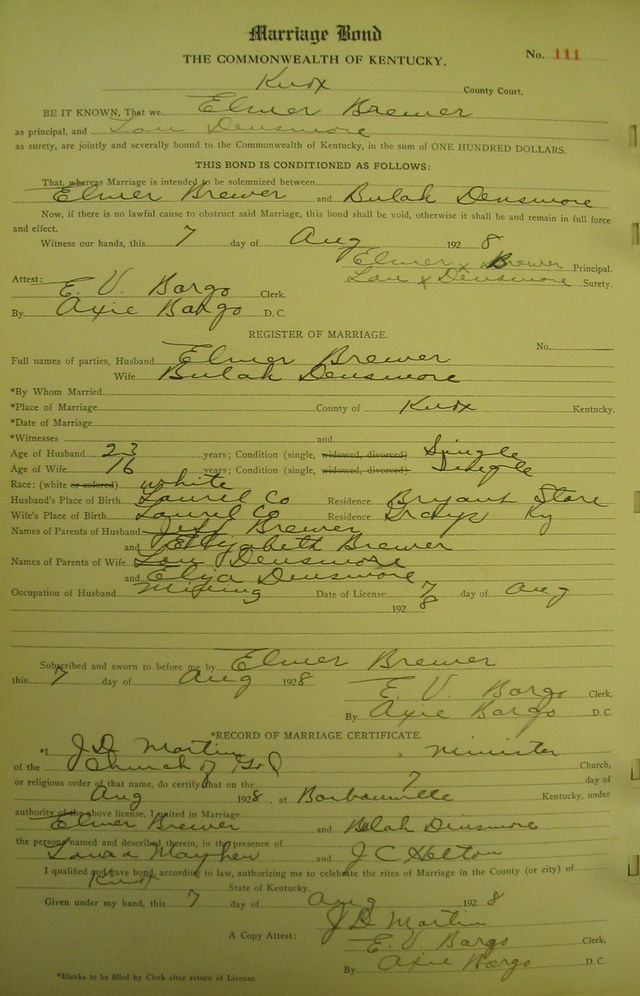 Marriage Bond
THE COMMONWEALTH OF KENTUCKY.
No. 111
Knox County Court.
BE IT KNOWN, That we Elmer Brewer
as principal, and Lou Densmore
as surety, are jointly and severally bound to the Commonwealth of Kentucky, in the sum of ONE HUNDRED DOLLARS.
THIS BOND IS CONDITIONED AS FOLLOWS:
That, whereas Marriage is intended to be solemnized between
Elmer Brewer and Bulah Densmore
Now, if there is no lawful cause to obstruct said Marriage, this bond shall be void, otherwise it shall be and remain in full force
and effect.
Witness our hands, this 7 day of Aug 1928
Elmer x Brewer Principal.
Lou x Densmore Surety.
Attest:
E. V. Bargo Clerk.
By Axie Bargo D. C.
REGISTER OF MARRIAGE.
No.
Full names of parties, Husband Elmer Brewer
Wife Bulah Densmore
*By Whom Married
*Place of Marriage County of Knox Kentucky.
*Date of Marriage
*Witnesses and
Age of Husband 23 years; Condition (single, widowed, divorced) Single
Age of Wife 16 years; Condition (single, widowed, divorced) Single
Race: (white or colored) white
Husband's Place of Birth Laurel Co Residence Bryant Store
Wife's Place of Birth Laurel Co Residence Grays Ky
Names of Parents of Husband Jeff Brewer
and Elizabeth Brewer
Names of Parents of Wife Lou Densmore
and Elya Densmore
Occupation of Husband Mining Date of License 7 day of Aug
1928
Subscribed and sworn to before me by Elmer Brewer
this 7 day of Aug 1928
E. V. Bargo Clerk,
By Axie Bargo D. C.
*RECORD OF MARRIAGE CERTIFICATE.
*I J D Martin, a minister
of the Church of God Church,
or religious order of that name, do certify that on the 7 day of
Aug 1928, at Barbourville Kentucky, under
authority of the above license, I united in Marriage
Elmer Brewer and Bulah Dinsmore
the persons named and described therein, in the presence of
Mayhew and J C Helton
I qualified and gave bond, according to law, authorizing me to celebrate the rites of Marriage in the County (or city) of
Knox State of Kentucky.
Given under my hand, this 7 day of Aug 1928
J D Martin
A Copy Attest: E. V. Bargo Clerk,
By Axie Bargo D. C.
*Blanks to be filled by Clerk after return of License.